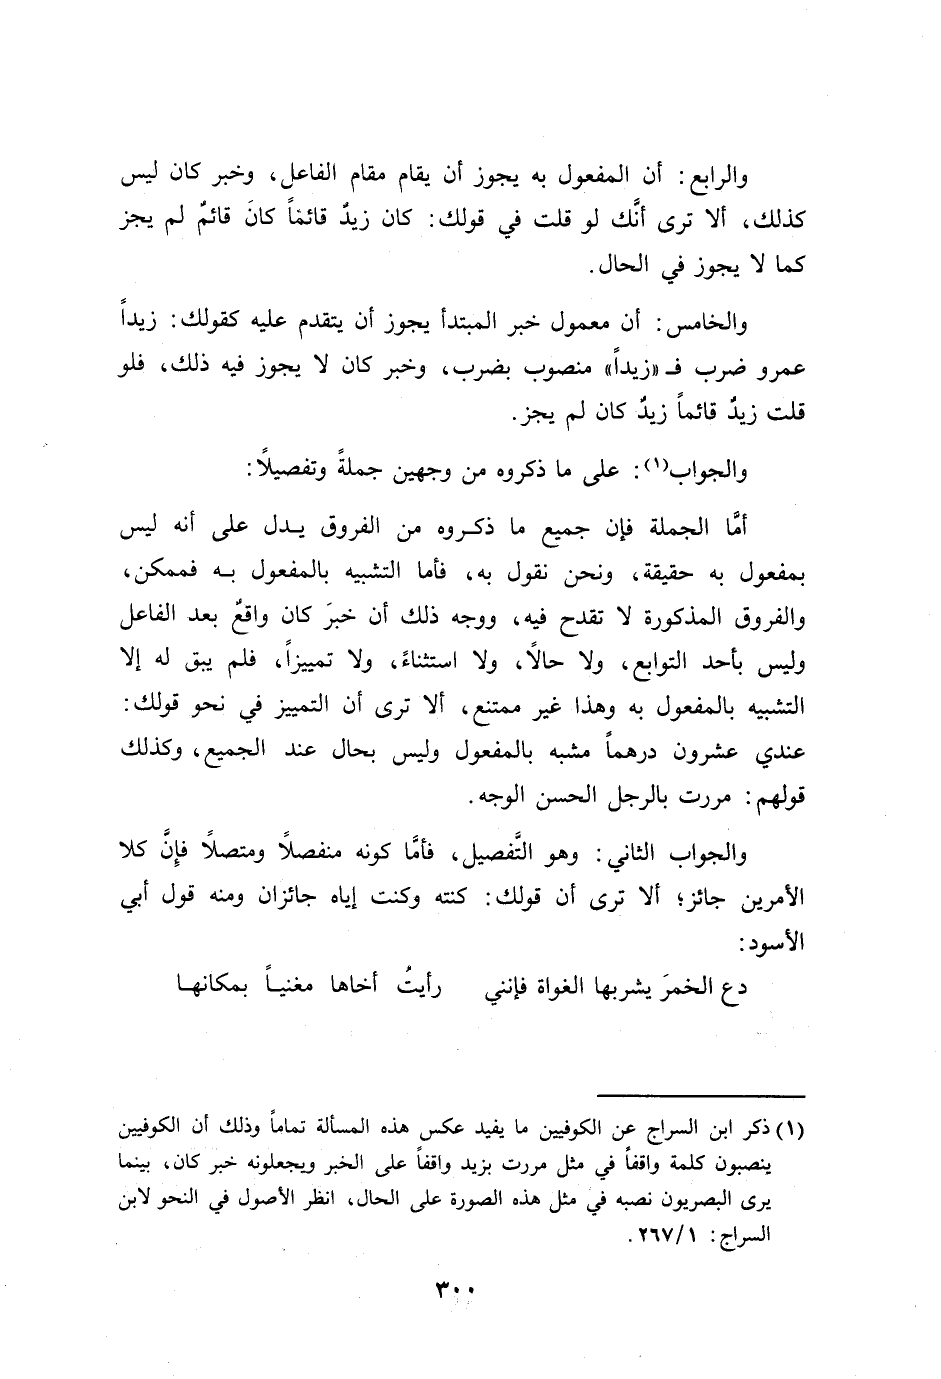 والرابع: أن المفعول به يجوز أن يقام مقام الفاعل، وخبر كان ليس
كذلك، ألا ترى أنَّك لو قلت في قولك: كان زيدٌ قائماً كانَ قائمٌ لم يجز
كما لا يجوز في الحال.
والخامس: أن معمول خبر المبتدأ يجوز أن يتقدم عليه كقولك: زيداً
عمرو ضرب فـ «زيداً» منصوب بضرب، وخبر كان لا يجوز فيه ذلك، فلو
قلت زيدٌ قائماً زيدٌ كان لم يجز.
والجواب(١): على ما ذكروه من وجهين جملةً وتفصيلًا:
أمَّا الجملة فإن جميع ما ذكروه من الفروق يدل على أنه ليس
بمفعول به حقيقة، ونحن نقول به، فأما التشبيه بالمفعول به فممكن،
والفروق المذكورة لا تقدح فيه، ووجه ذلك أن خبرَ كان واقعٌ بعد الفاعل
وليس بأحد التوابع، ولا حالًا، ولا استثناءً، ولا تمييزاً، فلم يبق له إلا
التشبيه بالمفعول به وهذا غير ممتنع، ألا ترى أن التمييز في نحو قولك:
عندي عشرون درهماً مشبه بالمفعول وليس بحال عند الجميع، وكذلك
قولهم: مررت بالرجل الحسن الوجه.
والجواب الثاني: وهو التَّفصيل، فأمَّا كونه منفصلًا ومتصلًا فإنَّ كلا
الأمرين جائز؛ ألا ترى أن قولك: كنته وكنت إياه جائزان ومنه قول أبي
الأسود:
دع الخمرَ يشربها الغواة فإنني رأيتُ أخاها مغنياً بمكانها
(١) ذكر ابن السراج عن الكوفيين ما يفيد عكس هذه المسألة تماماً وذلك أن الكوفيين
ينصبون كلمة واقفاً في مثل مررت بزيد واقفاً على الخبر ويجعلونه خبر كان، بينما
يرى البصريون نصبه في مثل هذه الصورة على الحال، انظر الأصول في النحو لابن
السراج: ٢٦٧/١.
٣٠٠